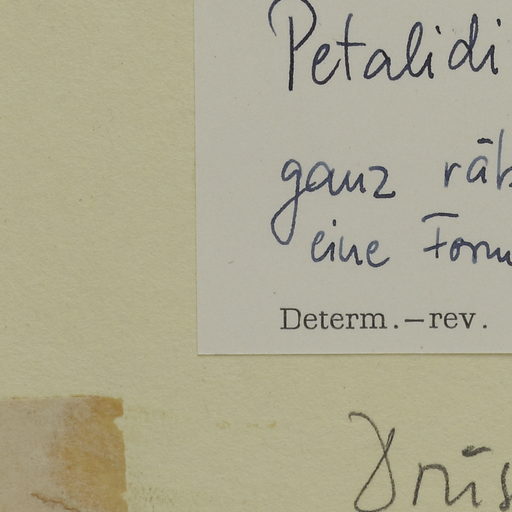 Petalidi
ganz
eine Form
Determ.—rev.